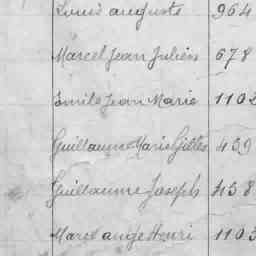 Louis auguste 964
Marcel Jean Julien 678
Emile Jean Marie 1102
Guillaume Marie Gilles 459
Guillaume Joseph 458
Marcel ange Henri 1103